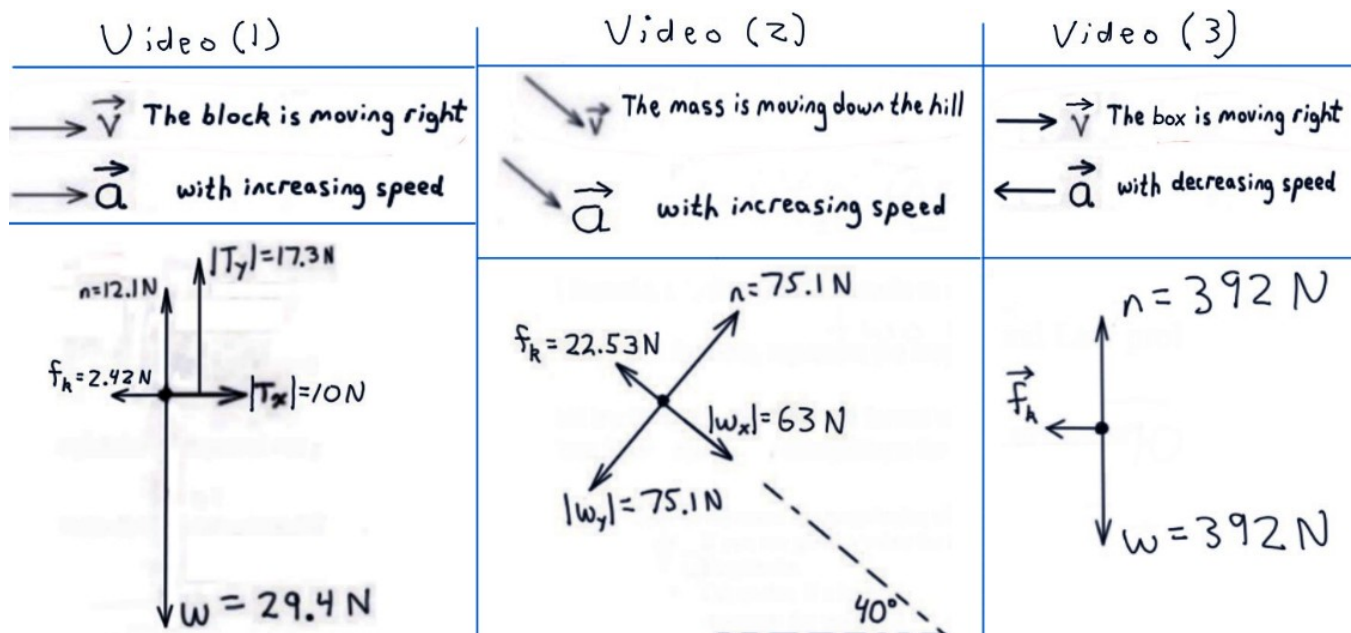 Video (1)
v The block is moving right
a with increasing speed
|Ty|=17.3N
n=12.1N
fk=2.42N
|Tx|=10N
w=29.4N
Video (2)
v The mass is moving down the hill
a with increasing speed
n=75.1N
fk=22.53N
|wx|=63N
|wy|=75.1N
40°
Video (3)
v The box is moving right
a with decreasing speed
n=392N
fk
w=392N